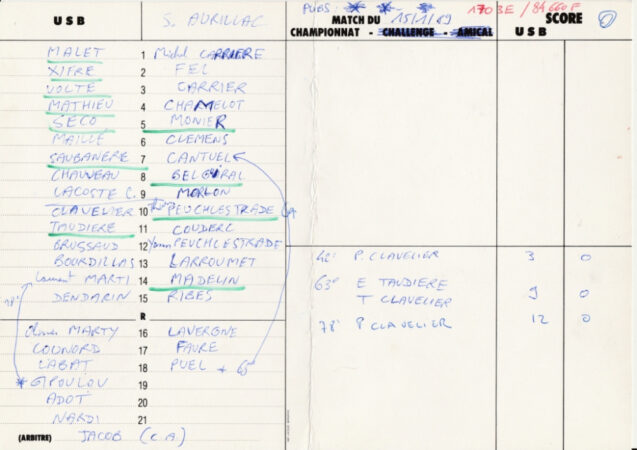 PUBS:
1703E / 84660F
U S B
S. AURILLAC
MATCH DU 15/1/89
SCORE
CHAMPIONNAT - CHALLENGE - AMICAL
U S B
MALET 1 Michel CARRIERE
XIFRE 2 FEL
VOLTE 3 CARRIER
MATHIEU 4 CHAMELOT
SECO 5 MONIER
MAILLE 6 CLEMENS
SAUBANERE 7 CANTUEL
CHAUVEAU 8
LACOSTE C. 9 MORLON
CLAVELIER 10 PEUCHLESTRADE
TAUDIERE 11 COUDERC
BRUSSAUD 12 Yoann PEUCHLESTRADE
BOURDILLAS 13 LARROUMET
Laurent MARTI 14 MADELIN
DENDARIN 15 RIBES
78'
R
MARTY 16 LAVERGNE
COUNORD 17 FAURE
LABAT 18 PUEL
GIPOULOU 19
ADOT 20
NARDI 21
(ARBITRE) JACOB (C.A.)
42' P. CLAVELIER 3 0
63' E TAUDIERE
T CLAVELIER 9 0
78' P CLAVELIER 12 0